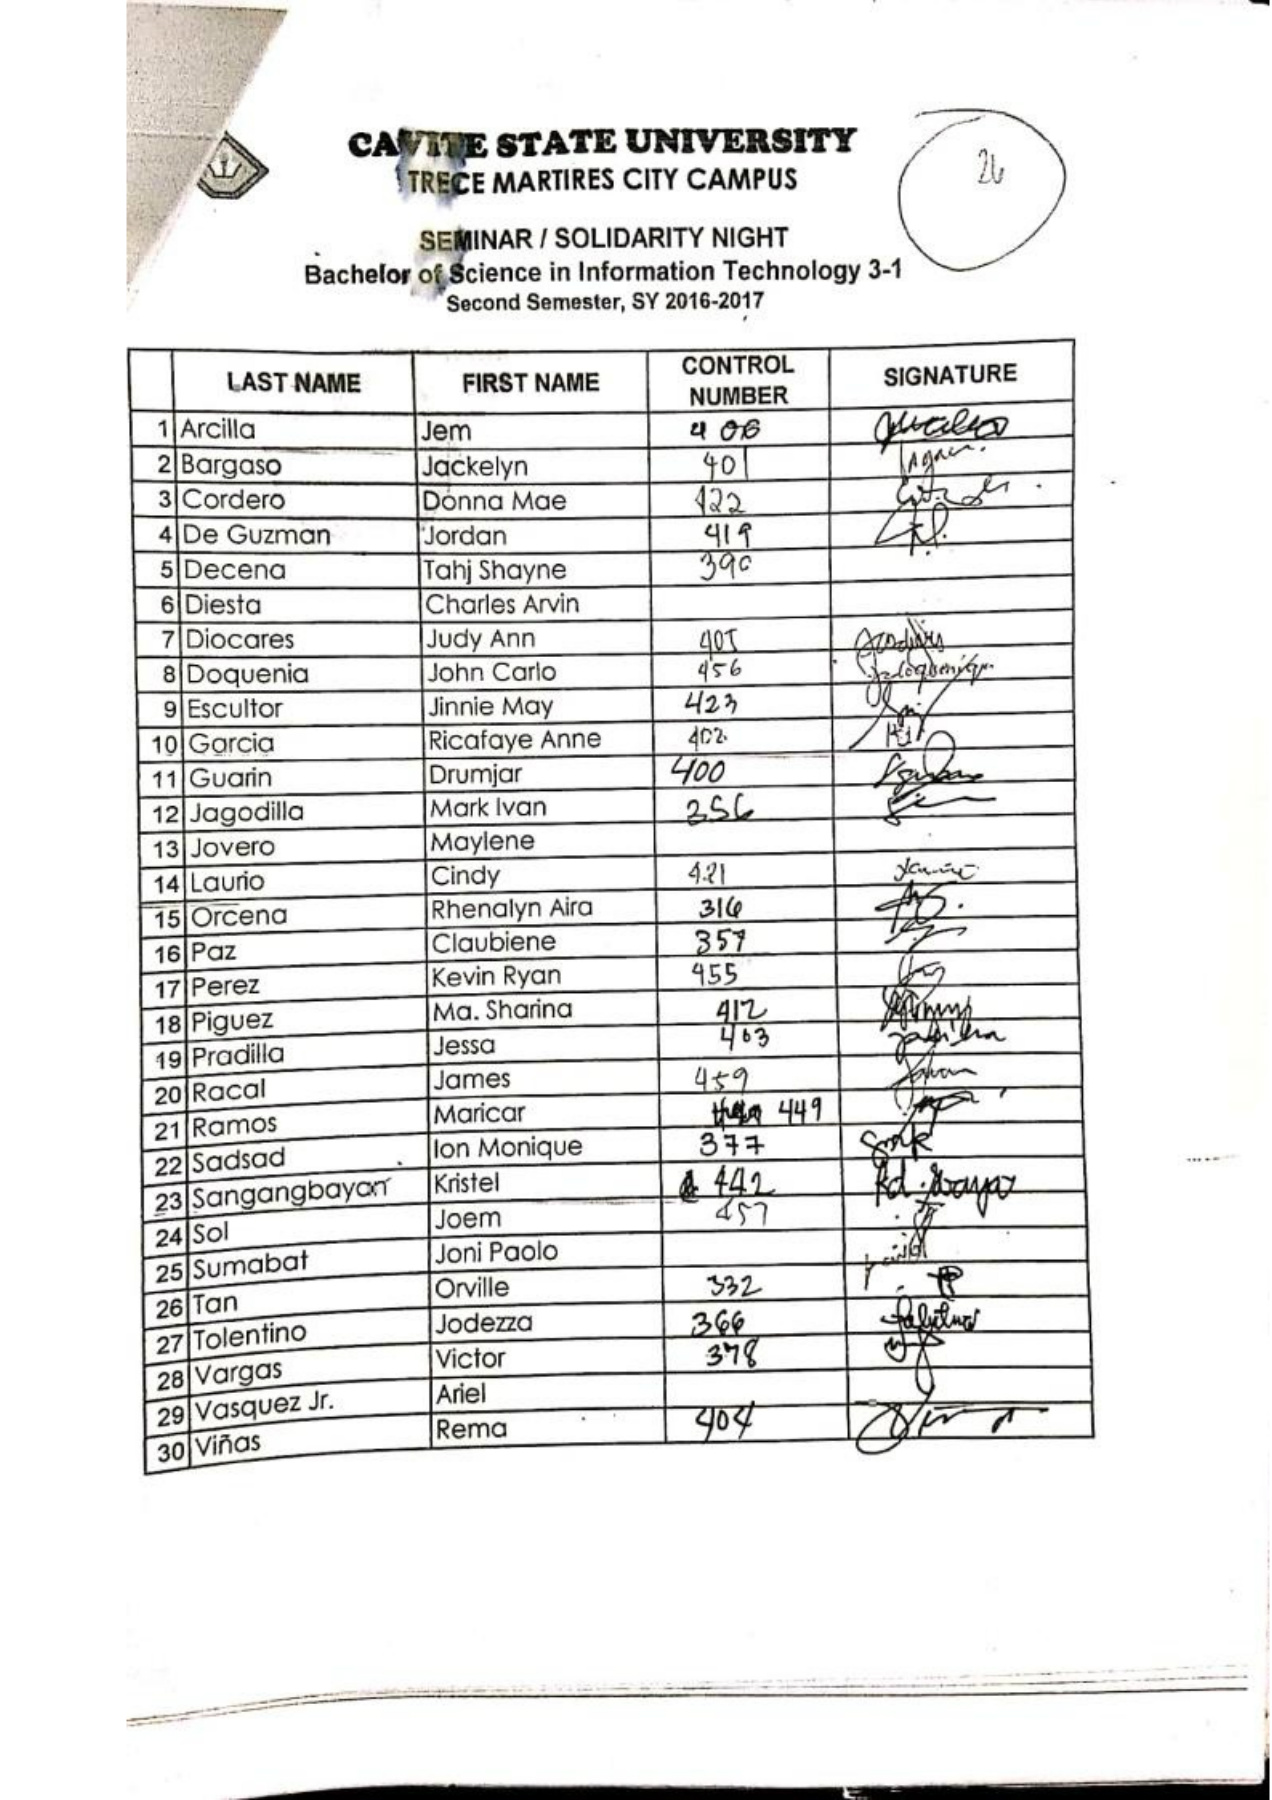 26
CAVITE STATE UNIVERSITY
TRECE MARTIRES CITY CAMPUS
SEMINAR / SOLIDARITY NIGHT
Bachelor of Science in Information Technology 3-1
Second Semester, SY 2016-2017
LAST NAME FIRST NAME CONTROL NUMBER SIGNATURE
1 Arcilla Jem 406
2 Bargaso Jackelyn 401
3 Cordero Donna Mae 422
4 De Guzman Jordan 419
5 Decena Tahj Shayne 390
6 Diesta Charles Arvin
7 Diocares Judy Ann 405
8 Doquenia John Carlo 456
9 Escultor Jinnie May 423
10 Garcia Ricafaye Anne 402
11 Guarin Drumjar 400
12 Jagodilla Mark Ivan 356
13 Jovero Maylene
14 Laurio Cindy 421
15 Orcena Rhenalyn Aira 316
16 Paz Claubiene 357
17 Perez Kevin Ryan 455
18 Piguez Ma. Sharina 412
19 Pradilla Jessa 403
20 Racal James 459
21 Ramos Maricar 449
22 Sadsad Ion Monique 377
23 Sangangbayan Kristel 442
24 Sol Joem 457
25 Sumabat Joni Paolo
26 Tan Orville 332
27 Tolentino Jodezza 366
28 Vargas Victor 378
29 Vasquez Jr. Ariel
30 Viñas Rema 404